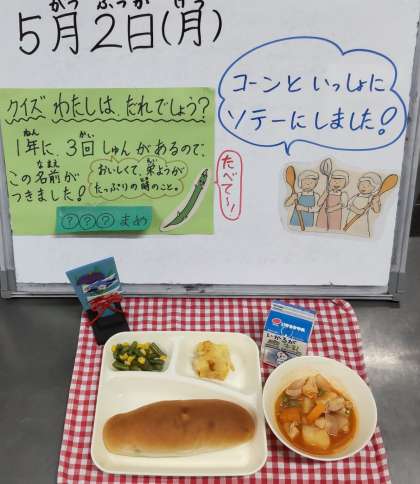 がつ ふつか げつ
5月2日(月)
クイズ わたしは、だれでしょう?
ねん かい
1年に、3回 しゅんがあるので、
なまえ
この名前が
つきました!
おいしくて、栄ようが
たっぷりの時のこと。
???まめ
たべて〜!
コーンといっしょに
ソテーにしました!
いかるが